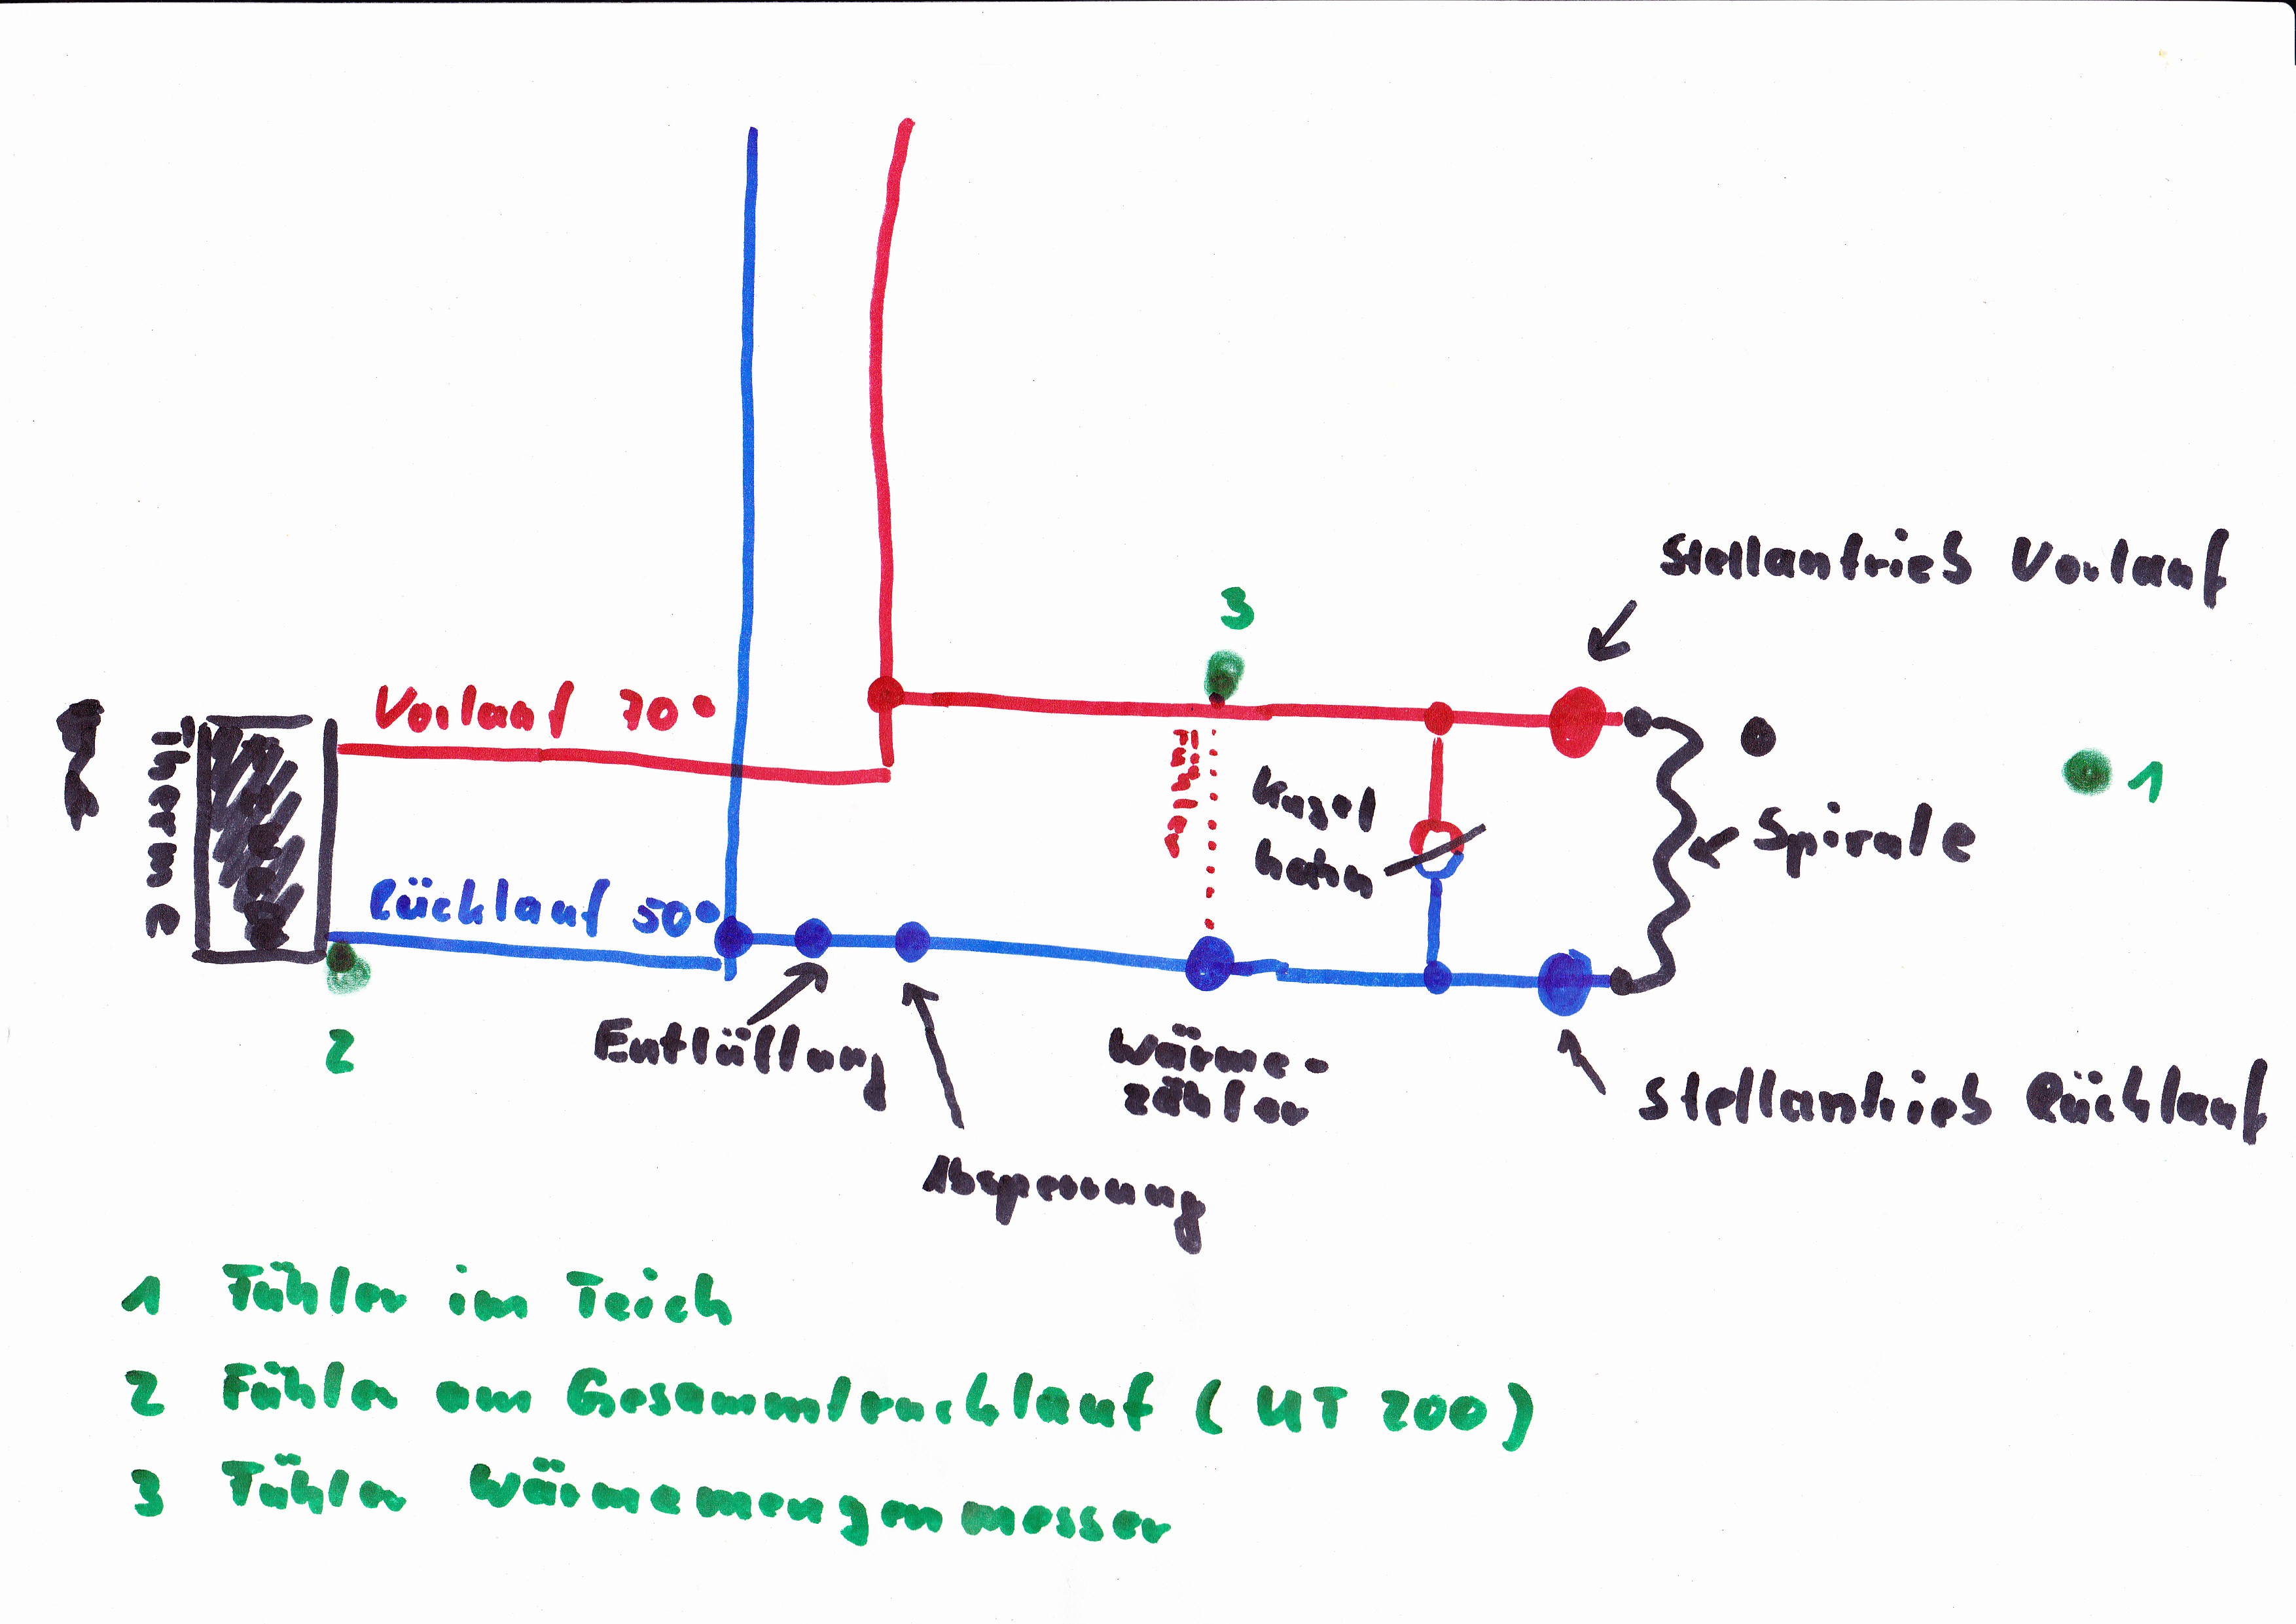 Stellantrieb Vorlauf
3
Vorlauf 70°
Therme
Fühler
Kugel
hahn
1
Spirale
Rücklauf 50°
2
Entlüftung
Wärme-
zähler
Stellantrieb Rücklauf
Absperrung
1 Fühler im Teich
2 Fühler am Gesammtrucklauf (UT 200)
3 Fühler Wärmemengenmesser